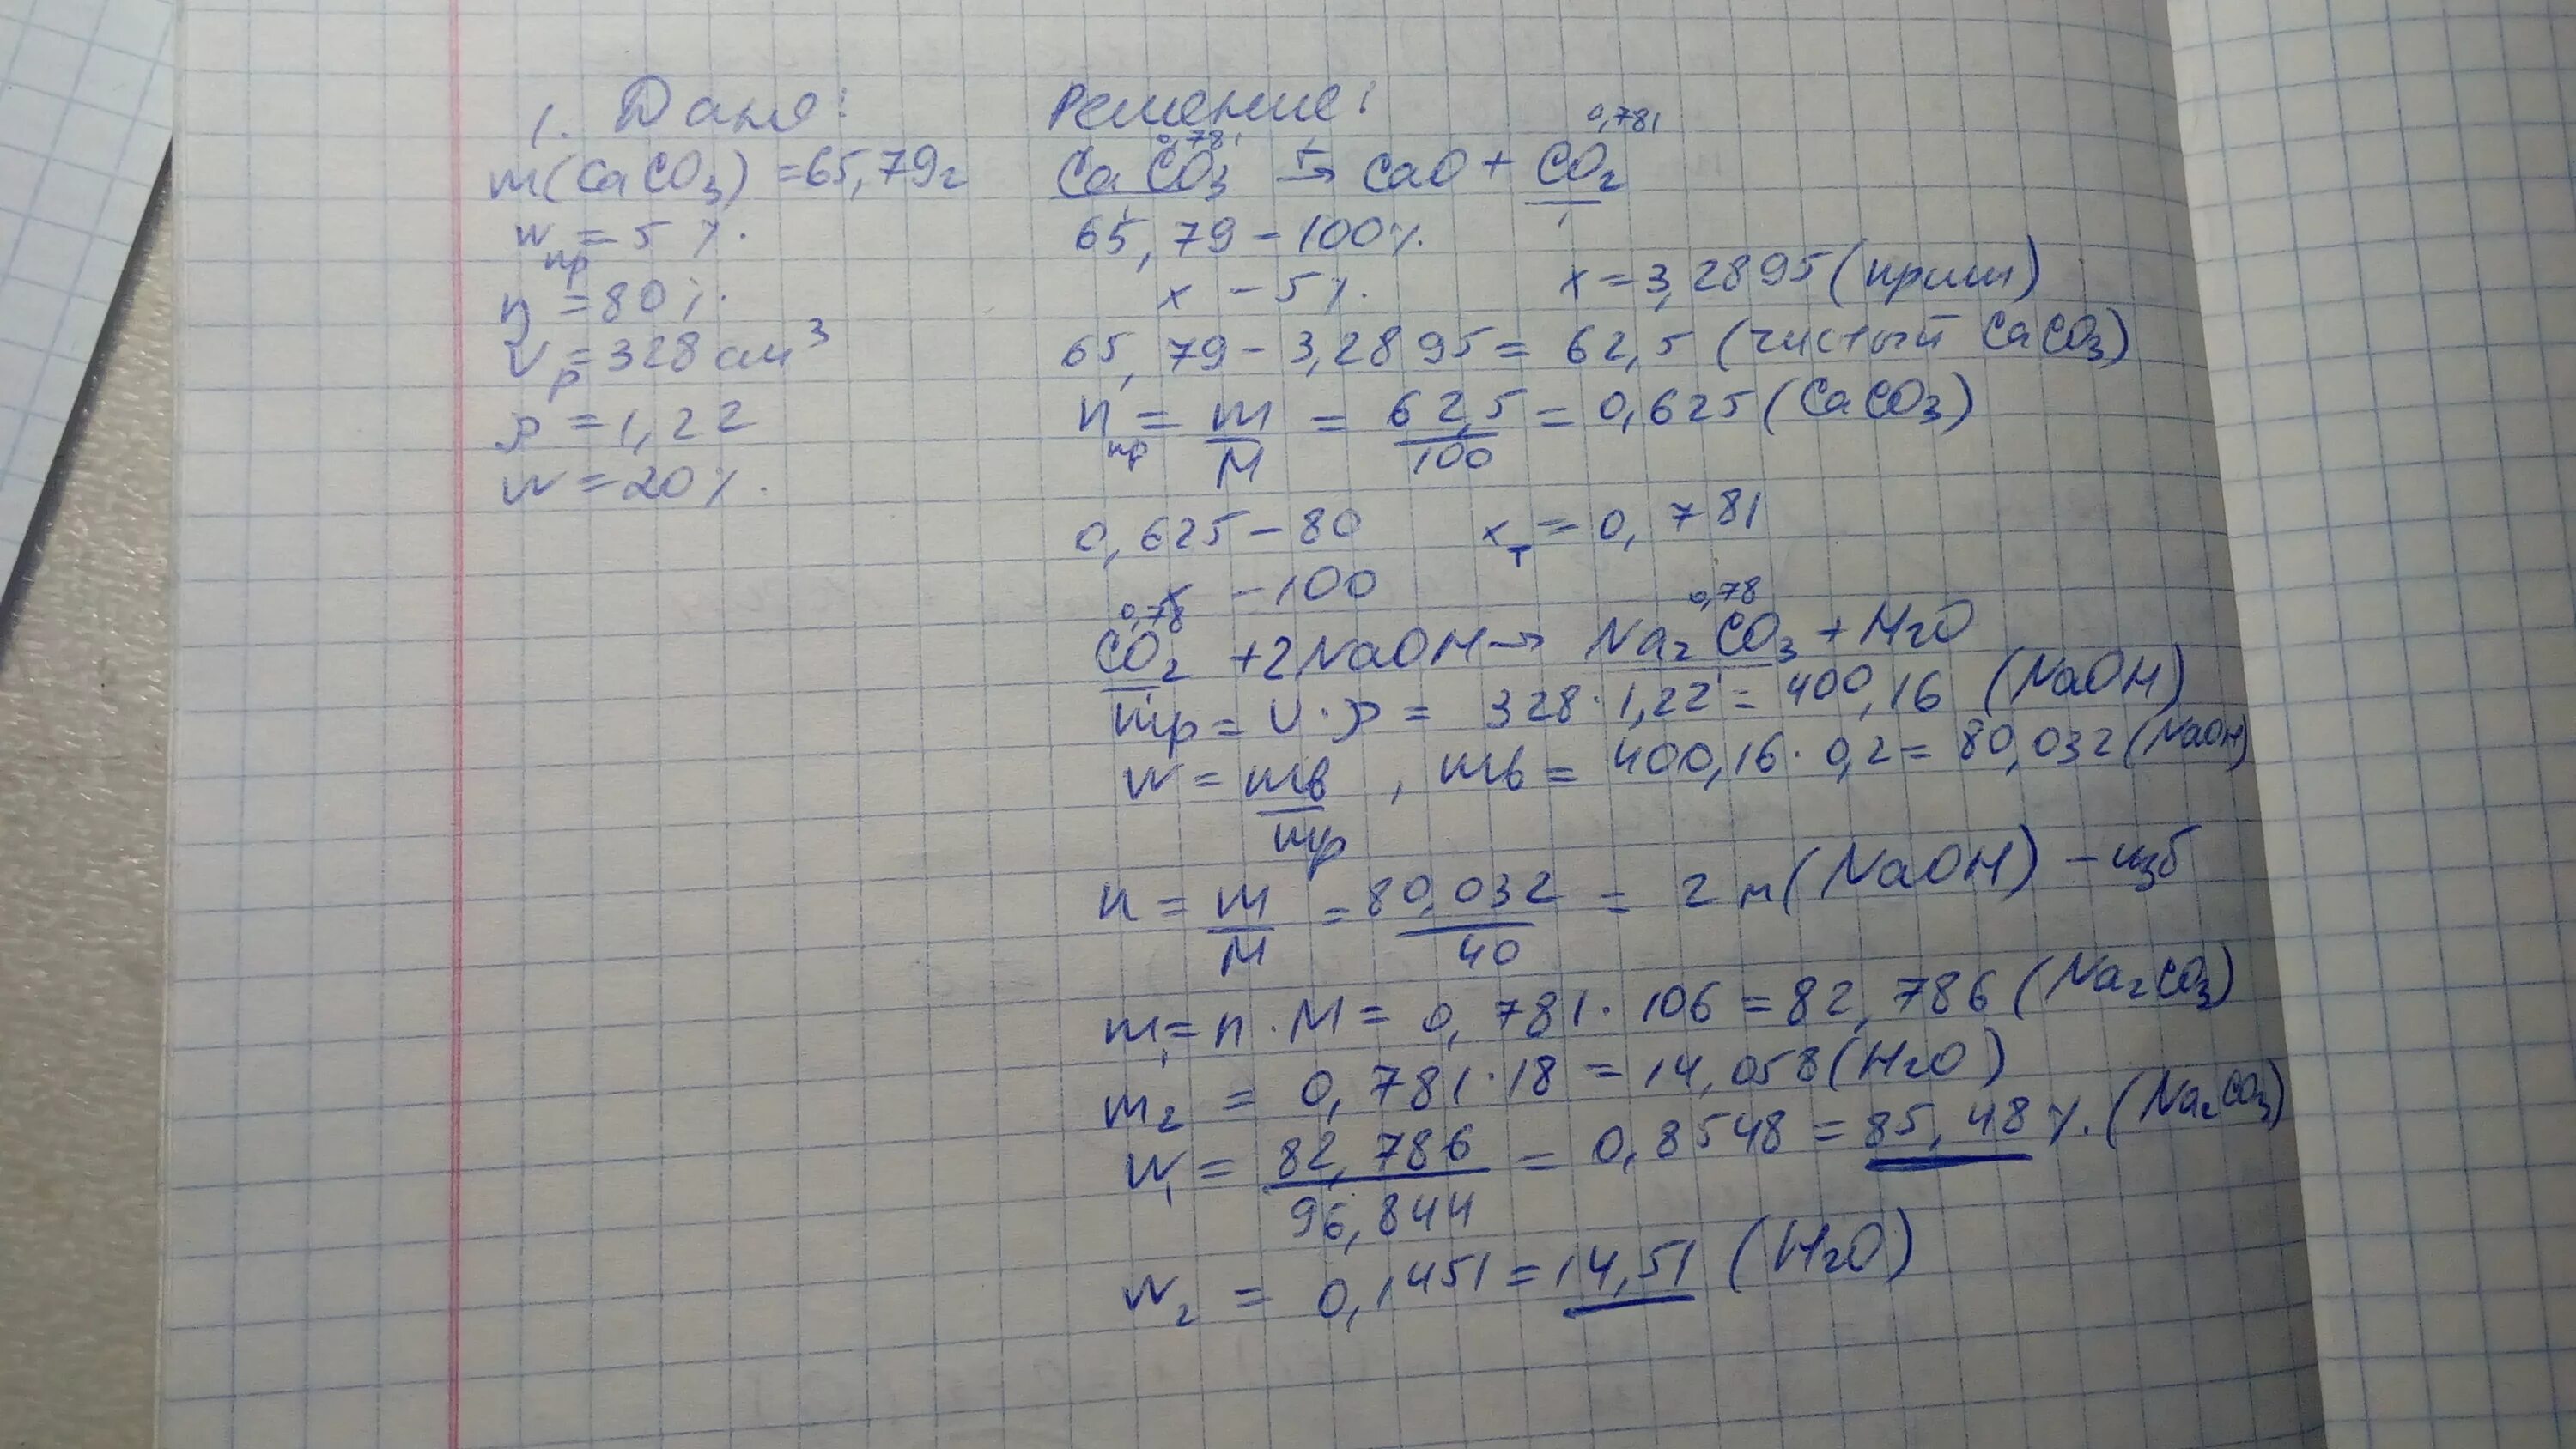 1. Дано:
m(CaCO3) = 65,79г
wпр = 5%.
η = 80%.
Vр = 328 см³
ρ = 1,22
w = 20%.
Решение:
0,781 0,781
CaCO3 t→ CaO + CO2
1 1
65,79 - 100%.
x - 5%. x = 3,2895 (прим)
65,79 - 3,2895 = 62,5 (чистый CaCO3)
nпр = m/M = 62,5/100 = 0,625 (CaCO3)
0,625 - 80 xт = 0,781
x - 100
0,78 0,78
CO2 + 2NaOH → Na2CO3 + H2O
1 1
mр = V · ρ = 328 · 1,22 = 400,16 (NaOH)
w = mв/mр, mв = 400,16 · 0,2 = 80,032 (NaOH)
n = m/M = 80,032/40 = 2 м (NaOH) - изб
m1 = n · M = 0,781 · 106 = 82,786 (Na2CO3)
m2 = 0,781 · 18 = 14,058 (H2O)
w1 = 82,786/96,844 = 0,8548 = 85,48%. (Na2CO3)
w2 = 0,1451 = 14,51 (H2O)